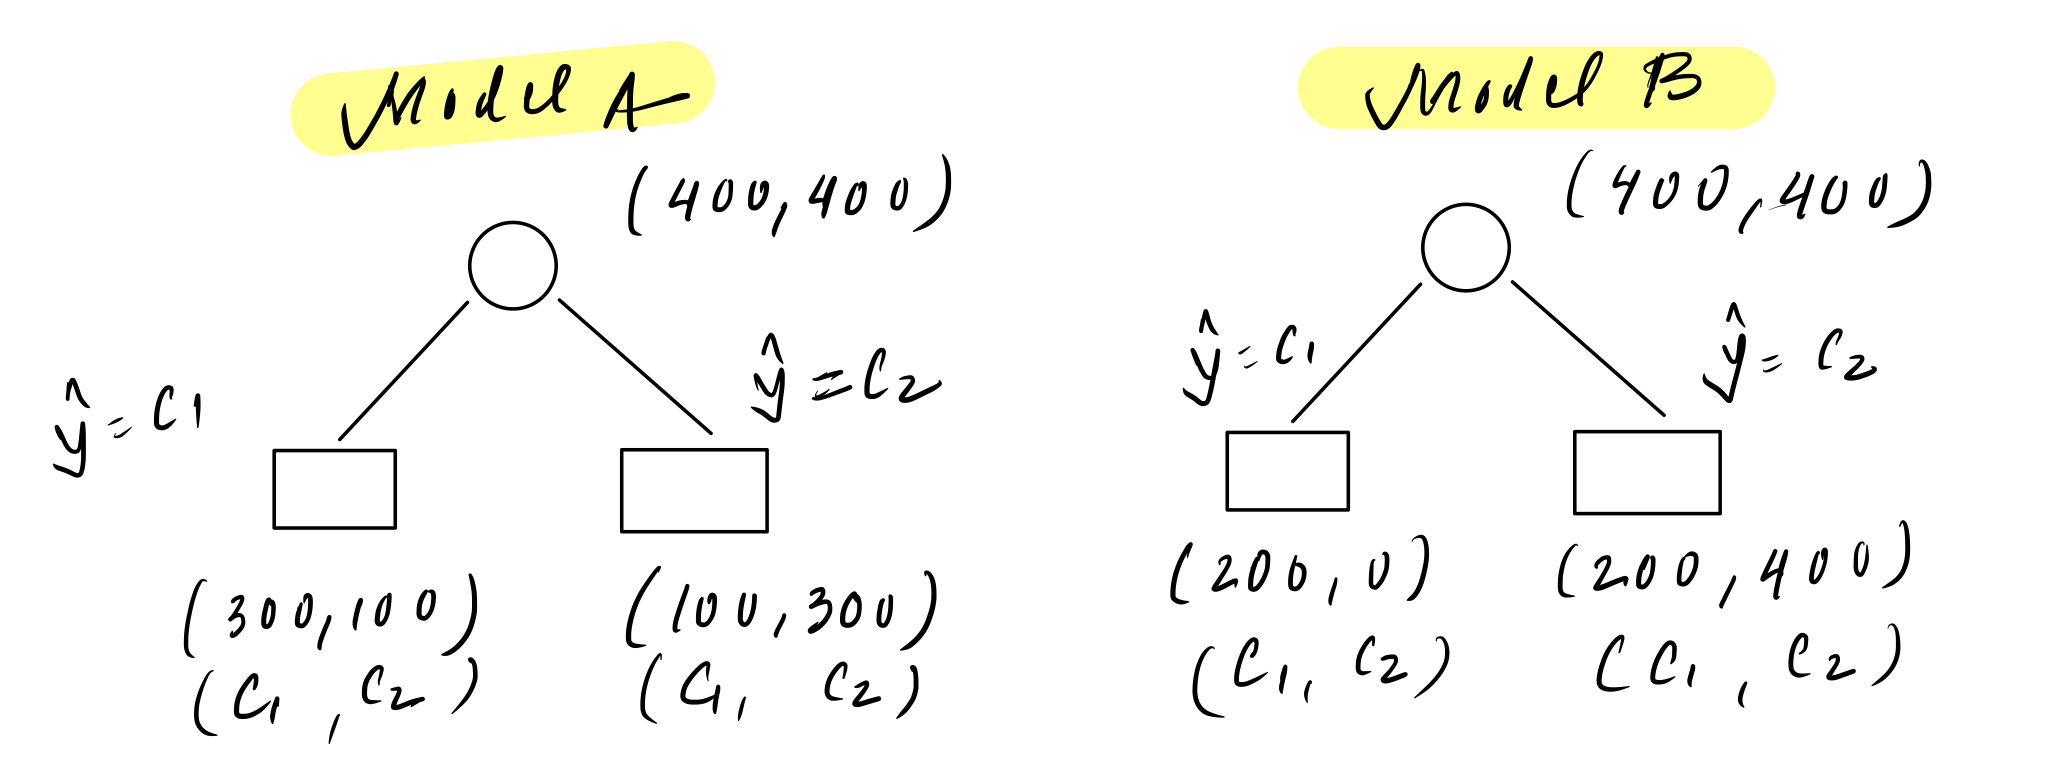 Model A
(400, 400)
ŷ = C1
ŷ = C2
(300, 100)
(C1, C2)
(100, 300)
(C1, C2)
Model B
(400, 400)
ŷ = C1
ŷ = C2
(200, 0)
(C1, C2)
(200, 400)
(C1, C2)